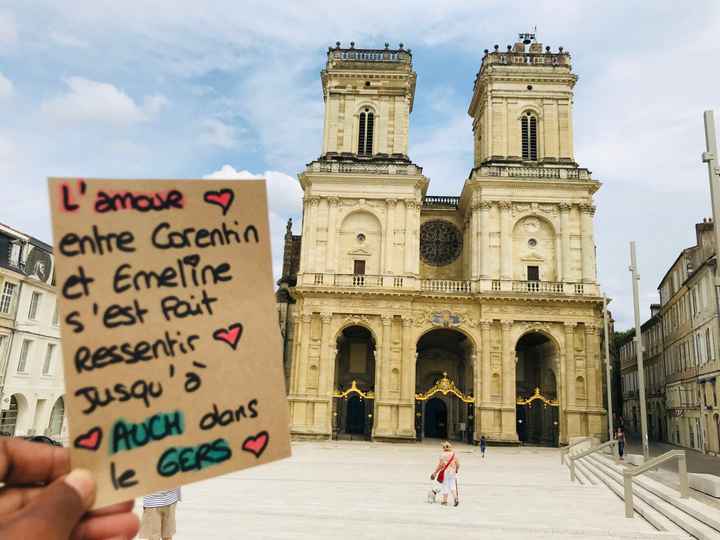 L'amour
entre Corentin
et Emeline
s'est fait
Ressentir
Jusqu'à
AUCH dans
le GERS